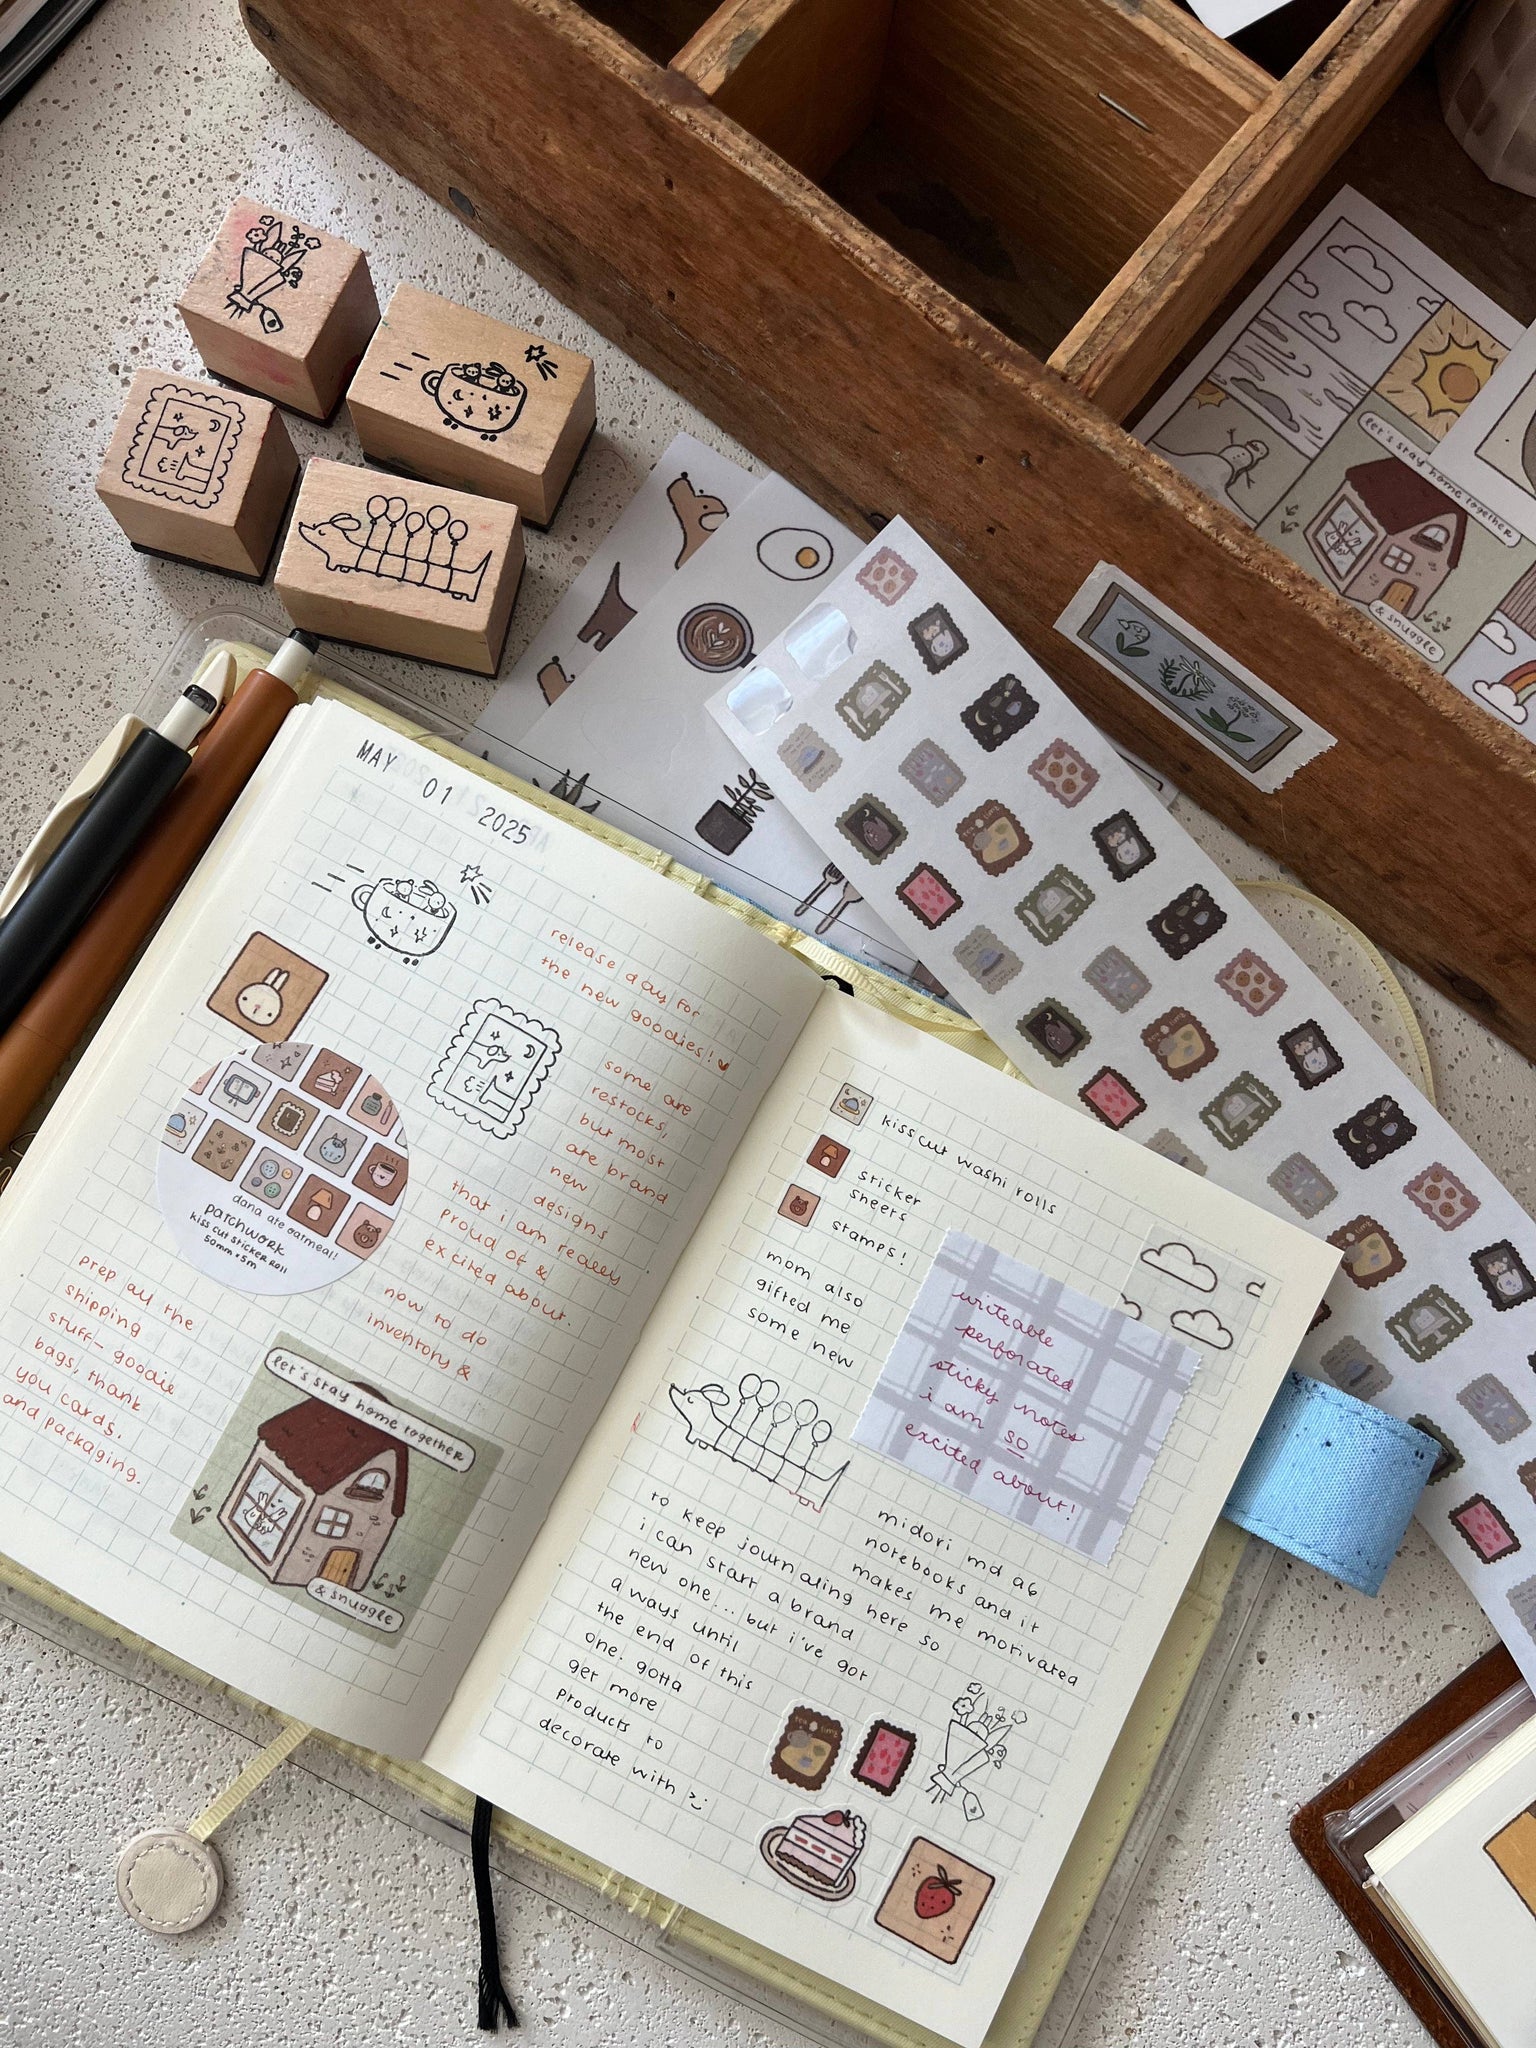 MAY 01 2025
release day for
the new goodies!
some are
restocks,
but most
are brand
new
designs
that i am really
proud of &
excited about.
now to do
inventory &
prep all the
shipping
stuff- goodie
bags, thank
you cards,
and packaging.
dana ate oatmeal!
patchwork
kiss cut sticker roll
50mm x 5m
let's stay home together
& snuggle
kisscut washi rolls
sticker
sheets
stamps!
mom also
gifted me
some new
midori md a6
notebooks and it
makes me motivated
to keep journaling here so
i can start a brand
new one... but i've got
a ways until
the end of this
one. gotta
get more
products to
decorate with
writeable
perforated
sticky notes
i am so
excited about!
let's stay home together
& snuggle